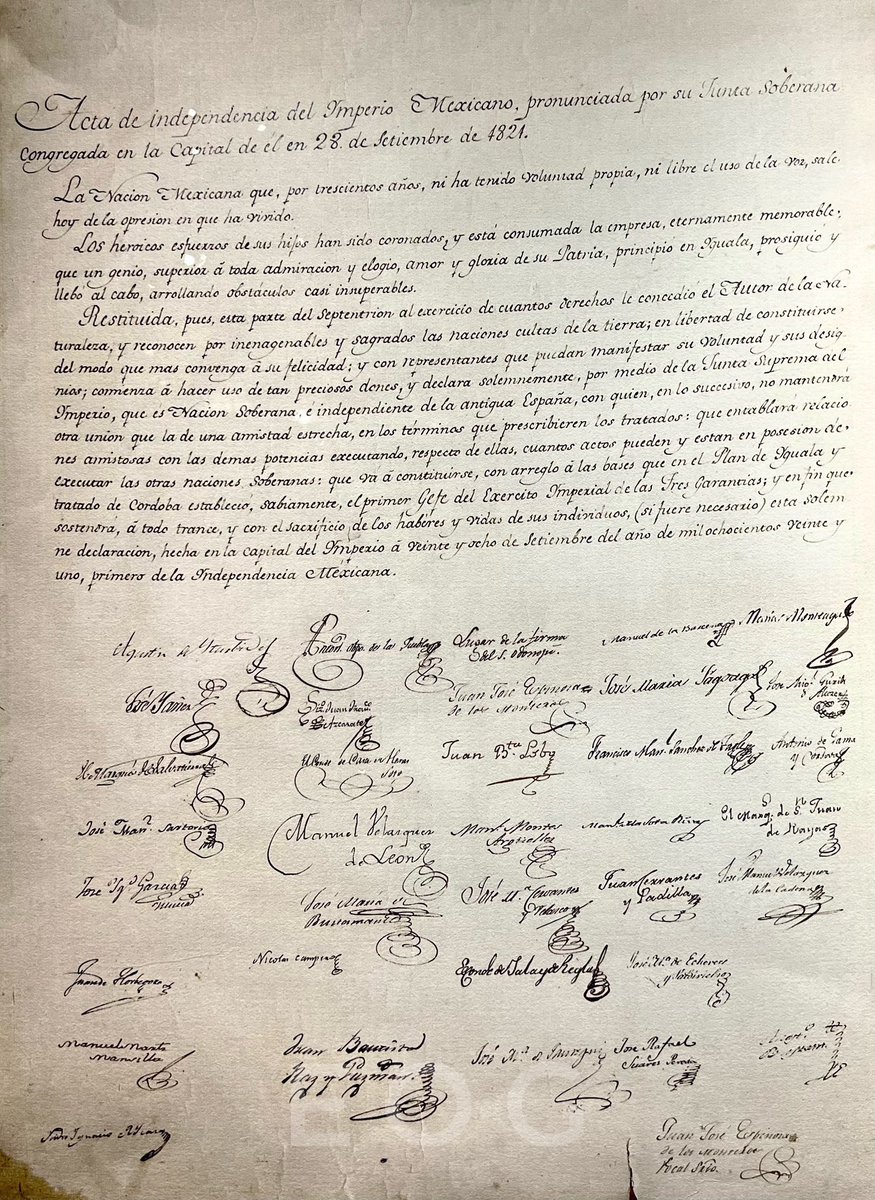 Acta de independencia del Ymperio Mexicano, pronunciada por su Junta Soberana
congregada en la Capital de él en 28 de Setiembre de 1821.
La Nacion Mexicana que, por trescientos años, ni ha tenido voluntad propia, ni libre el uso de la voz, sale
hoy de la opresion en que ha vivido.
Los heroicos esfuerzos de sus hijos han sido coronados, y está consumada la empresa, eternamente memorable,
que un genio, superior á toda admiracion y elogio, amor y gloria de su Patria, principió en Yguala, prosiguió y
llebó al cabo, arrollando obstáculos casi insuperables.
Restituida, pues, esta parte del Septentrion al exercicio de cuantos derechos le concedió el Autor de la Na-
turaleza, y reconocen por inenagenables y sagrados las naciones cultas de la tierra; en libertad de constituirse
del modo que mas convenga á su felicidad; y con representantes que puedan manifestar su voluntad y sus desig
nios; comienza á hacer uso de tan preciosos dones, y declara solemnemente, por medio de la Junta Suprema del
Ymperio, que es Nacion Soberana, e independiente de la antigua España, con quien, en lo succesivo, no mantendrá
otra union que la de una amistad estrecha, en los términos que prescribieren los tratados: que entablará relacio
nes amistosas con las demas potencias executando, respecto de ellas, cuantos actos pueden y estan en posesion de
executar las otras naciones Soberanas: que vá á constituirse, con arreglo á las bases que en el Plan de Yguala y
tratado de Cordoba estableció, sabiamente, el primer Gefe del Exercito Ymperial de las Tres Garantias; y en fin que
sostendrá, á todo trance, y con el sacrificio de los habéres y vidas de sus individuos, (si fuere necesario) esta solem
ne declaracion, hecha en la Capital del Ymperio á veinte y ocho de Setiembre del año de mil ochocientos veinte y
uno, primero de la Independencia Méxicana.
Agustin de Iturbide
Anton. Obpo. de la Puebla
Lugar de la firma
del S. Odonojú.
Manuel de la Barcena
Matias Monteagudo
José Yañez
Juan José Espinosa
de los Monteros
José Maria Fagoaga
El Marqués de Salvatierra
El Conde de Casa de Heras
Soto
Juan Bta. Lobo
Francisco Man. Sanchez de Tagle
Antonio de Gama
y Cordova
José Man. Sartorio
Manuel Velazquez
de León
Man. Montes
Argüelles
El Marq. de Sn. Juan
de Rayas
José Ign. Garcia
José María de
Bustamante
José Ma. Cervantes
y Velasco
Juan Cervantes
y Padilla
José Manuel Velazquez
de la Cadena
Juan de Horbegoso
Nicolas Campero
El Conde de Jala y de Regla
José Ma. de Echevers
y Valdivielso
Manuel Martz.
Mansilla
Juan Bautista
Raz y Guzman
José Rafael
Suarez Pereda
Juan José Espinosa
de los Monteros
Vocal Srio.